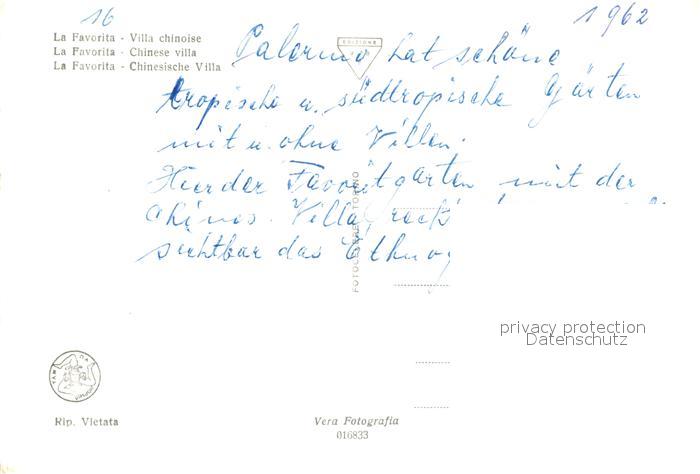 16
1962
La Favorita - Villa chinoise
La Favorita - Chinese villa
La Favorita - Chinesische Villa
EDIZIONE
Palermo hat schöne
tropische u. südtropische Gärten
mit u. ohne Villen.
Hier der Favoritgarten mit der
Chines. Villa,
sichtbar das Ethnog
privacy protection
Datenschutz
Rip. Vietata
Vera Fotografia
016833